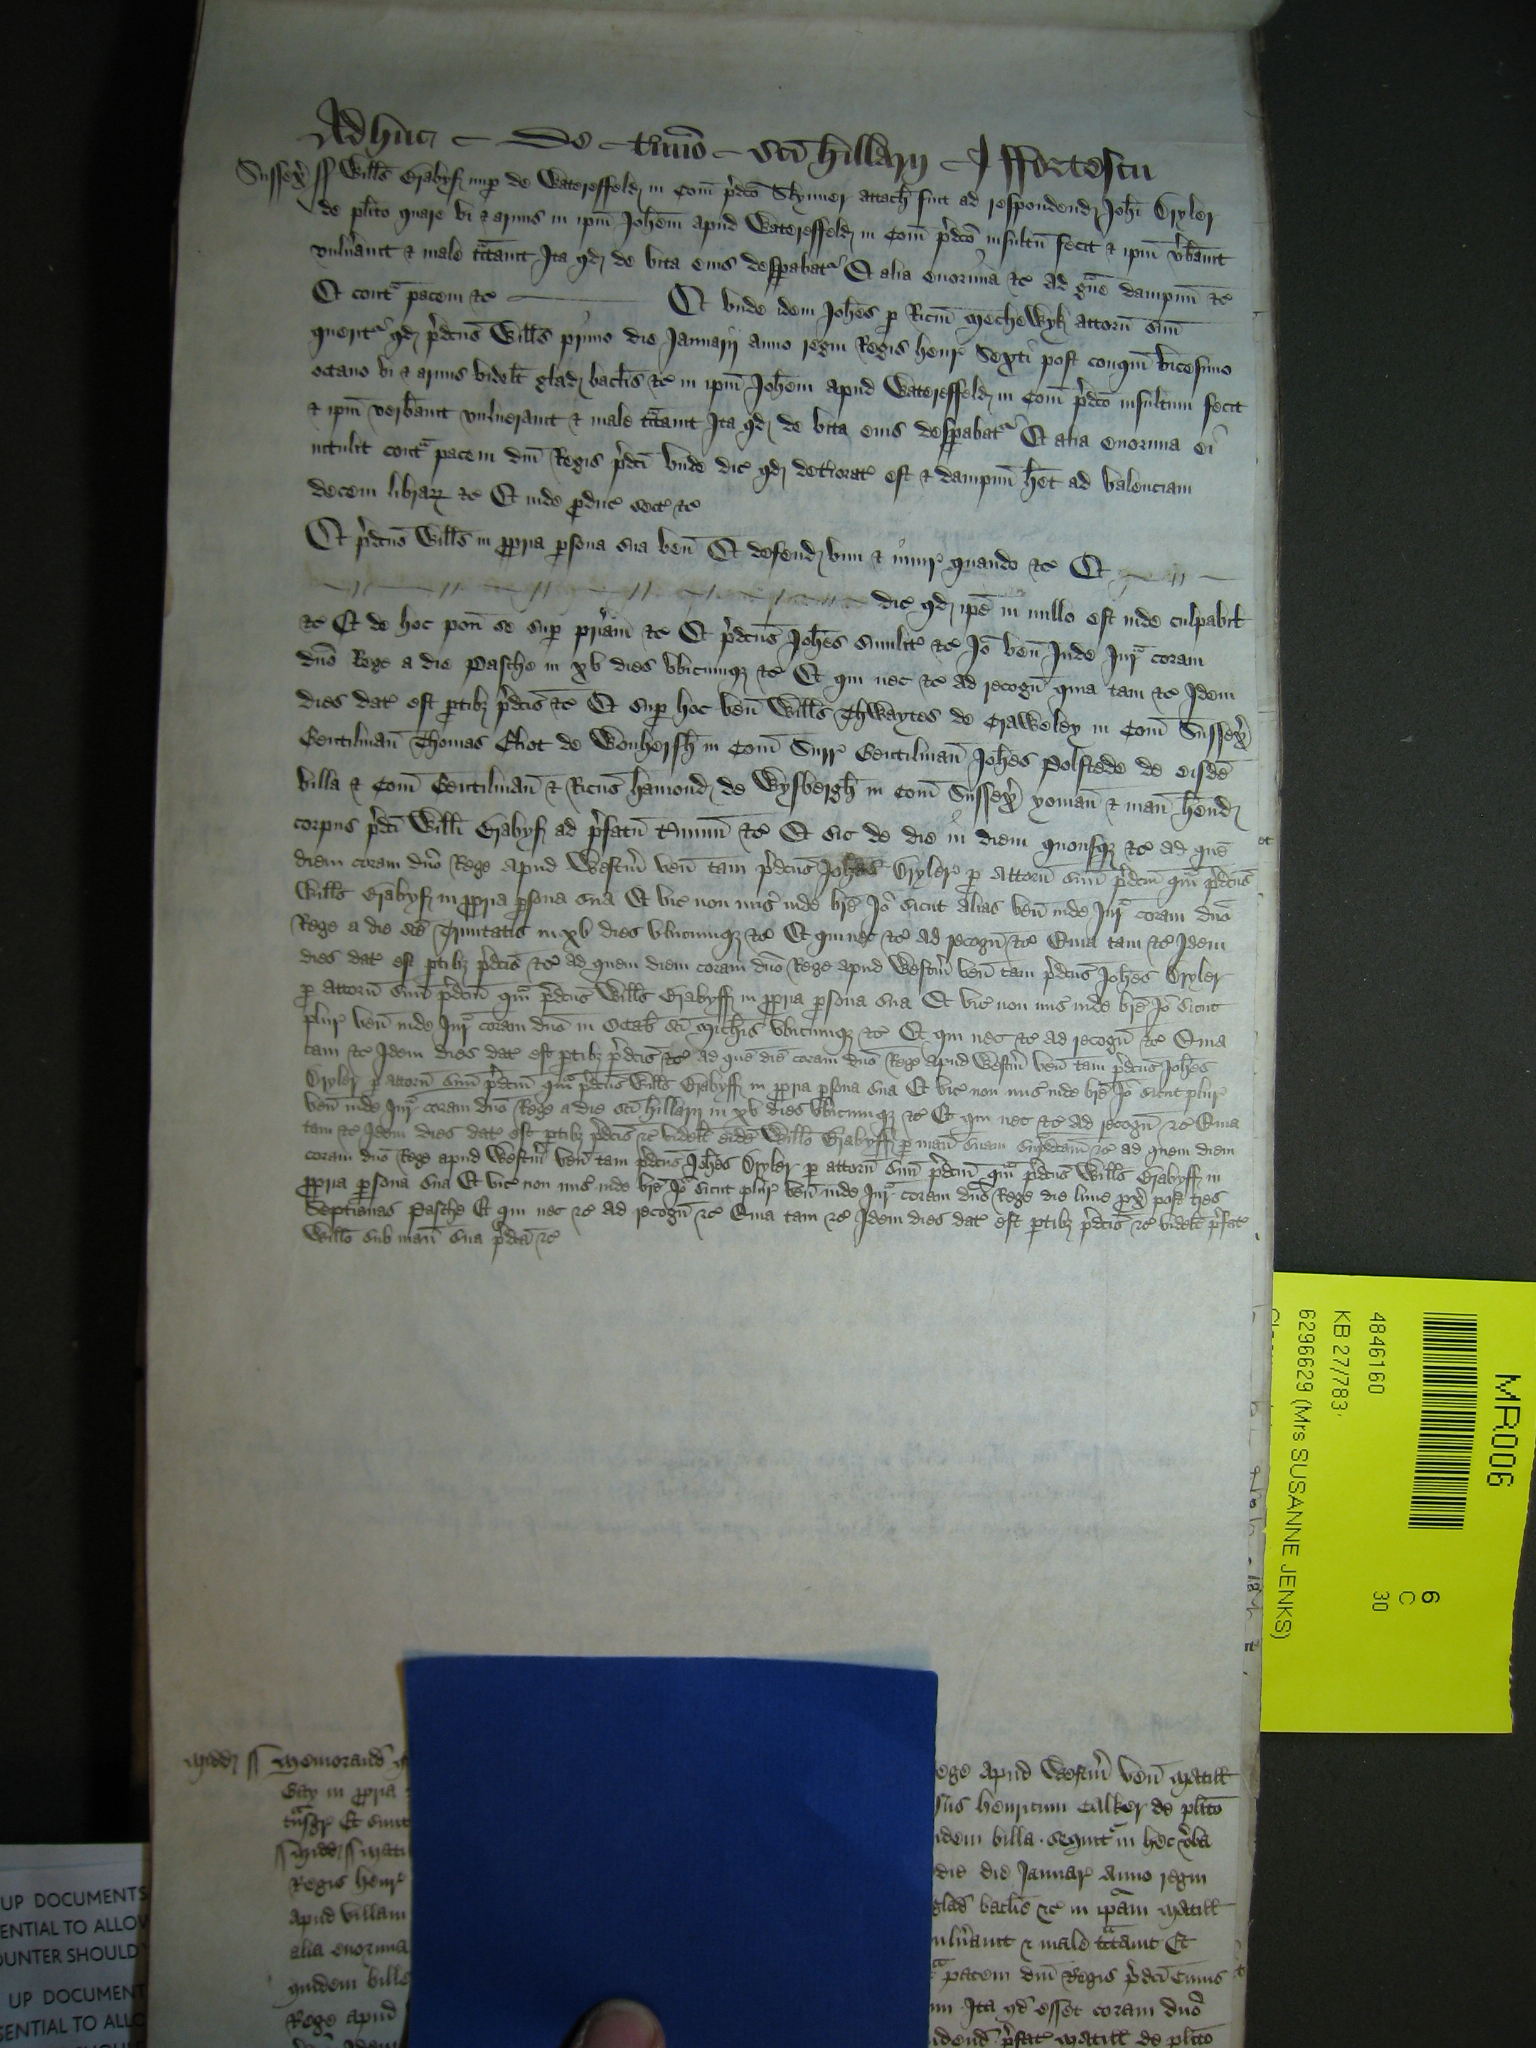 Adhuc de t'mino sc̄i hillarij J ffortescu
Sussex' ss Wills Grabyf nup de Watersffeld in Com̄ p'dc̄o Skynner attach fuit ad respondend Joh̄i Tryler
de pl̄ito quare vi & armis in ip̄m Joh̄em apud Watersffeld in Com̄ p'dc̄o insultū fecit & ip̄m v'bauit
vuln'auit & male tractauit Ita qd de vita eius desp̄abat' Et alia enormia &c ad g̃ue dampnū &c
Et cont'a pacem &c Et vnde idem Joh̄es p Ric̄m Mechewyk attorn̄ suū
querit' qd p'dcūs Wills primo die Januarij anno regni Regis henr' Sexti post conqm̄ vicesimo
octauo vi & armis videlt glad bacl̄is &c in ip̄m Joh̄em apud Watersffeld in Com̄ p'dc̄o insultum fecit
& ip̄m verbauit vulnerauit & male tractauit Ita qd de vita eius desp̄abat' Et alia enormia ei
intulit cont'a pacem dn̄i Regis p'dc̄i vnde dic' qd det'iorat' est & dampnū het ad valenciam
decem librar &c Et inde p̄duc' sect' &c
Et p'dcūs Wills in p̄pria p̄sona sua ven̄ Et defend vim & iniur' quando &c Et
dic' qd ip̄e in nullo est inde culpabil
&c Et de hoc pon̄ se sup pr̄iam &c Et p'dcūs Joh̄es similit' &c Jō ven̄ Inde Jur' coram
dn̄o Rege a die Pasche in xv dies vbicumq &c Et qui nec &c ad recogn̄ quia tam &c Idem
dies dat' est p̄tib p'dc̄is &c Et sup hoc ven̄ Wills Thwaytes de Craweley in Com̄ Sussex'
Gentilman̄ Thomas Eliot de Wonhersh in Com̄ Surr' Gentilman̄ Joh̄es Polstede de eisdē
villa & Com̄ Gentilman̄ & Ric̄us hamond de Wysbergh in Com̄ Sussex' yoman̄ & man̄ hend
corpus p'dc̄i Willi Grabyf ad p'fatū t'minū &c Et sic de die in diem quousq &c ad quē
diem coram dn̄o Rege apud Westm̄ ven̄ tam p'dcūs Joh̄es Tryler p attorn̄ suū p'dc̄m qm̄ p'dcūs
Wills Grabyf in p̄pria p̄sona sua Et vic' non mis' inde br̄e Jō sicut alias ven̄ inde Jur' coram dn̄o
Rege a die sc̄e Trinitatis in xv dies vbicumq &c Et qui nec &c ad recogn̄ &c Quia tam &c Idem
dies dat' est p̄tib p'dc̄is &c ad quem diem coram dn̄o Rege apud Westm̄ ven̄ tam p'dcūs Joh̄es Tryler
p attorn̄ suū p'dc̄m qm̄ p'dcūs Wills Grabyff in p̄pria p̄sona sua Et vic' non mis' inde br̄e Jō sicut
plur' ven̄ inde Jur' coram dn̄o in Octab sc̄i Mich̄is vbicumq &c Et qui nec &c ad recogn̄ &c Quia
tam &c Idem dies dat' est p̄tib p'dc̄is &c ad quē diē coram dn̄o Rege apud Westm̄ ven̄ tam p'dcūs Joh̄es
Tryler p attorn̄ suū p'dc̄m qm̄ p'dcūs Wills Grabyff in p̄pria p̄sona sua Et vic' non mis' inde br̄e Jō sicut plur'
ven̄ inde Jur' coram dn̄o Rege a die sc̄i hillarij in xv dies vbicumq &c Et qui nec &c ad recogn̄ &c Quia
tam &c Idem dies dat' est p̄tib p'dc̄is &c videlt eidē Willo Grabyff p man̄ suam sup̄dc̄am &c ad quem diem
coram dn̄o Rege apud Westm̄ ven̄ tam p'dcūs Joh̄es Tryler p attorn̄ suū p'dc̄m qm̄ p'dcūs Wills Grabyff in
p̄pria p̄sona sua Et vic' non mis' inde br̄e Jō sicut plur' ven̄ inde Jur' coram dn̄o Rege die lune p̄x' post tres
septianas Pasche Et qui nec &c ad recogn̄ &c Quia tam &c Idem dies dat' est p̄tib p'dc̄is &c videlt p'fat'
Willo sub man̄ sua p'dc̄a &c
Midd ss Memorand
ege apud Westm̄ ven̄ Matill
in p̄pria
sus henricum Calker de pl̄ito
tn̄sgr' Et sunt
idem billa sequit' in hec v'ba
ss Midd ss Matil
die die Januar' Anno regni
Regis henr'
glad bacl̄is &c in ip̄am Matill
apud villam
uln'auit & male tractauit Et
alia enormia
pacem dn̄i Regis p'dc̄i Cuius
quidem bille
Ita qd esset coram dn̄o
Rege apud
idend p'fat' Matill de pl̄ito
MR006
4846160
KB 27/783
6296629 (Mrs SUSANNE JENKS)
6
C
30
UP DOCUMENTS
ENTIAL TO ALLOW
OUNTER SHOULD
UP DOCUMENT
SENTIAL TO ALLO